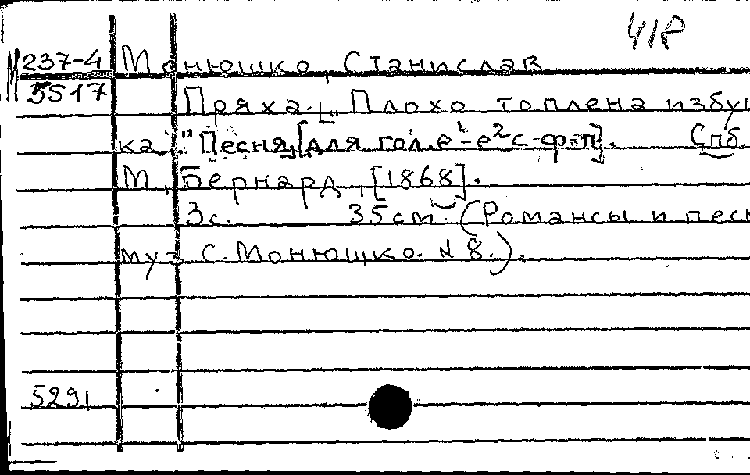 41Р
М 237-4 Монюшко, Станислав
5517 Пряха. „Плохо топлена избуш
ка". Песня, [для гол. e¹-e² с ф-п]. Спб.
М. Бернард, [1868].
3с. 35 см. (Романсы и песн
муз. С. Монюшко. N 8.).
5291